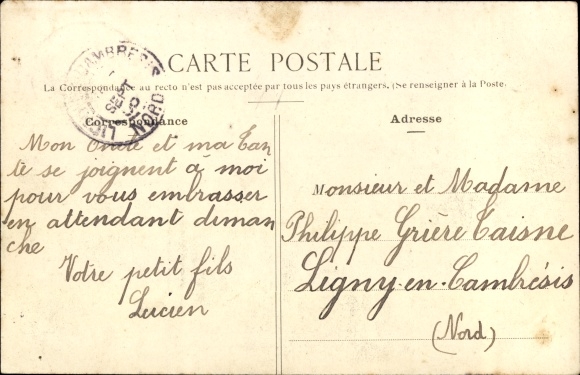 CARTE POSTALE
La Correspondance au recto n'est pas acceptée par tous les pays étrangers. (Se renseigner à la Poste.
Correspondance
Mon Oncle et ma Tan
te se joignent à moi
pour vous embrasser
en attendant diman
che
Votre petit fils
Lucien
Adresse
Monsieur et Madame
Philippe Grière Taisne
Ligny-en-Cambrésis
(Nord)
SEPT
NORD